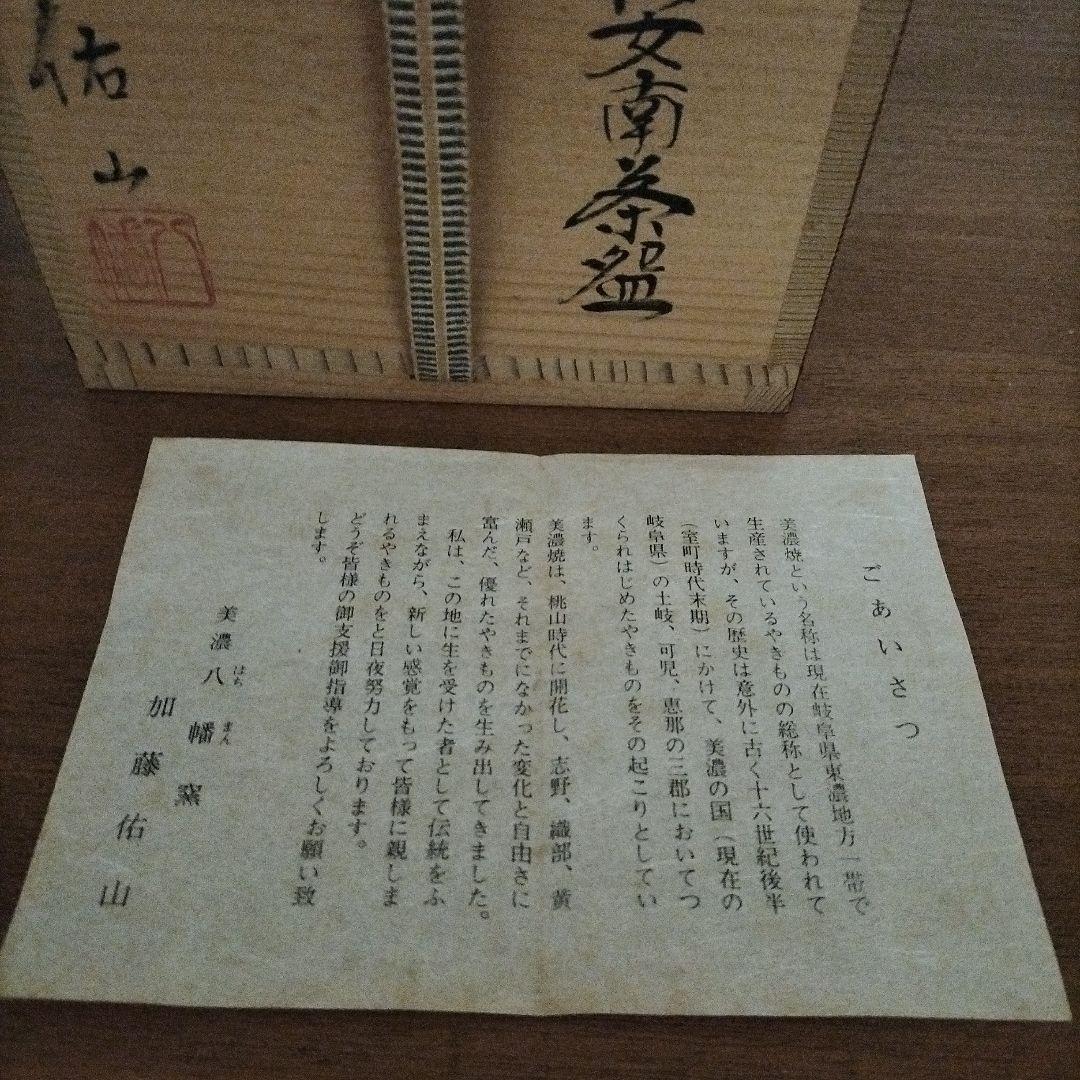 安南茶盌
佑山
ごあいさつ
美濃焼という名称は現在岐阜県東濃地方一帯で
生産されているやきものの総称として使われて
いますが、その歴史は意外に古く十六世紀後半
(室町時代末期)にかけて、美濃の国(現在の
岐阜県)の土岐、可児、恵那の三郡においてつ
くられはじめたやきものをその起こりとしてい
ます。
美濃焼は、桃山時代に開花し、志野、織部、黄
瀬戸など、それまでになかった変化と自由さに
富んだ、優れたやきものを生み出してきました。
私は、この地に生を受けた者として伝統をふ
まえながら、新しい感覚をもって皆様に親しま
れるやきものをと日夜努力しております。
どうぞ皆様の御支援御指導をよろしくお願い致
します。
美濃八幡窯
はちまん
加藤佑山